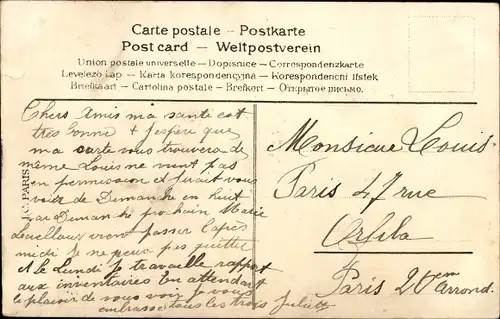 Carte postale – Postkarte
Post card – Weltpostverein
Union postale universelle – Dopisnice – Correspondenzkarte
Levelező Lap – Karta korespondencyjna – Korespondencni listek
Briefkaart – Cartolina postale – Brefkort – Открытое письмо.
Chers Amis ma santé est
très bonne + j'espère que
ma carte vous trouvera de
même Louis ne vient pas
en permission et irait vous
voir de Dimanche en huit
car Dimanche prochain Marie
vient passer l'après
midi Je ne peux pas quitter
et le Lundi Je travaille rapport
aux inventaires En attendant
le plaisir de vous voir je vous
embrasse tous les trois Juliette
C. PARIS
Monsieur Louis
Paris 47 rue
Orfila
Paris 20em arrond.